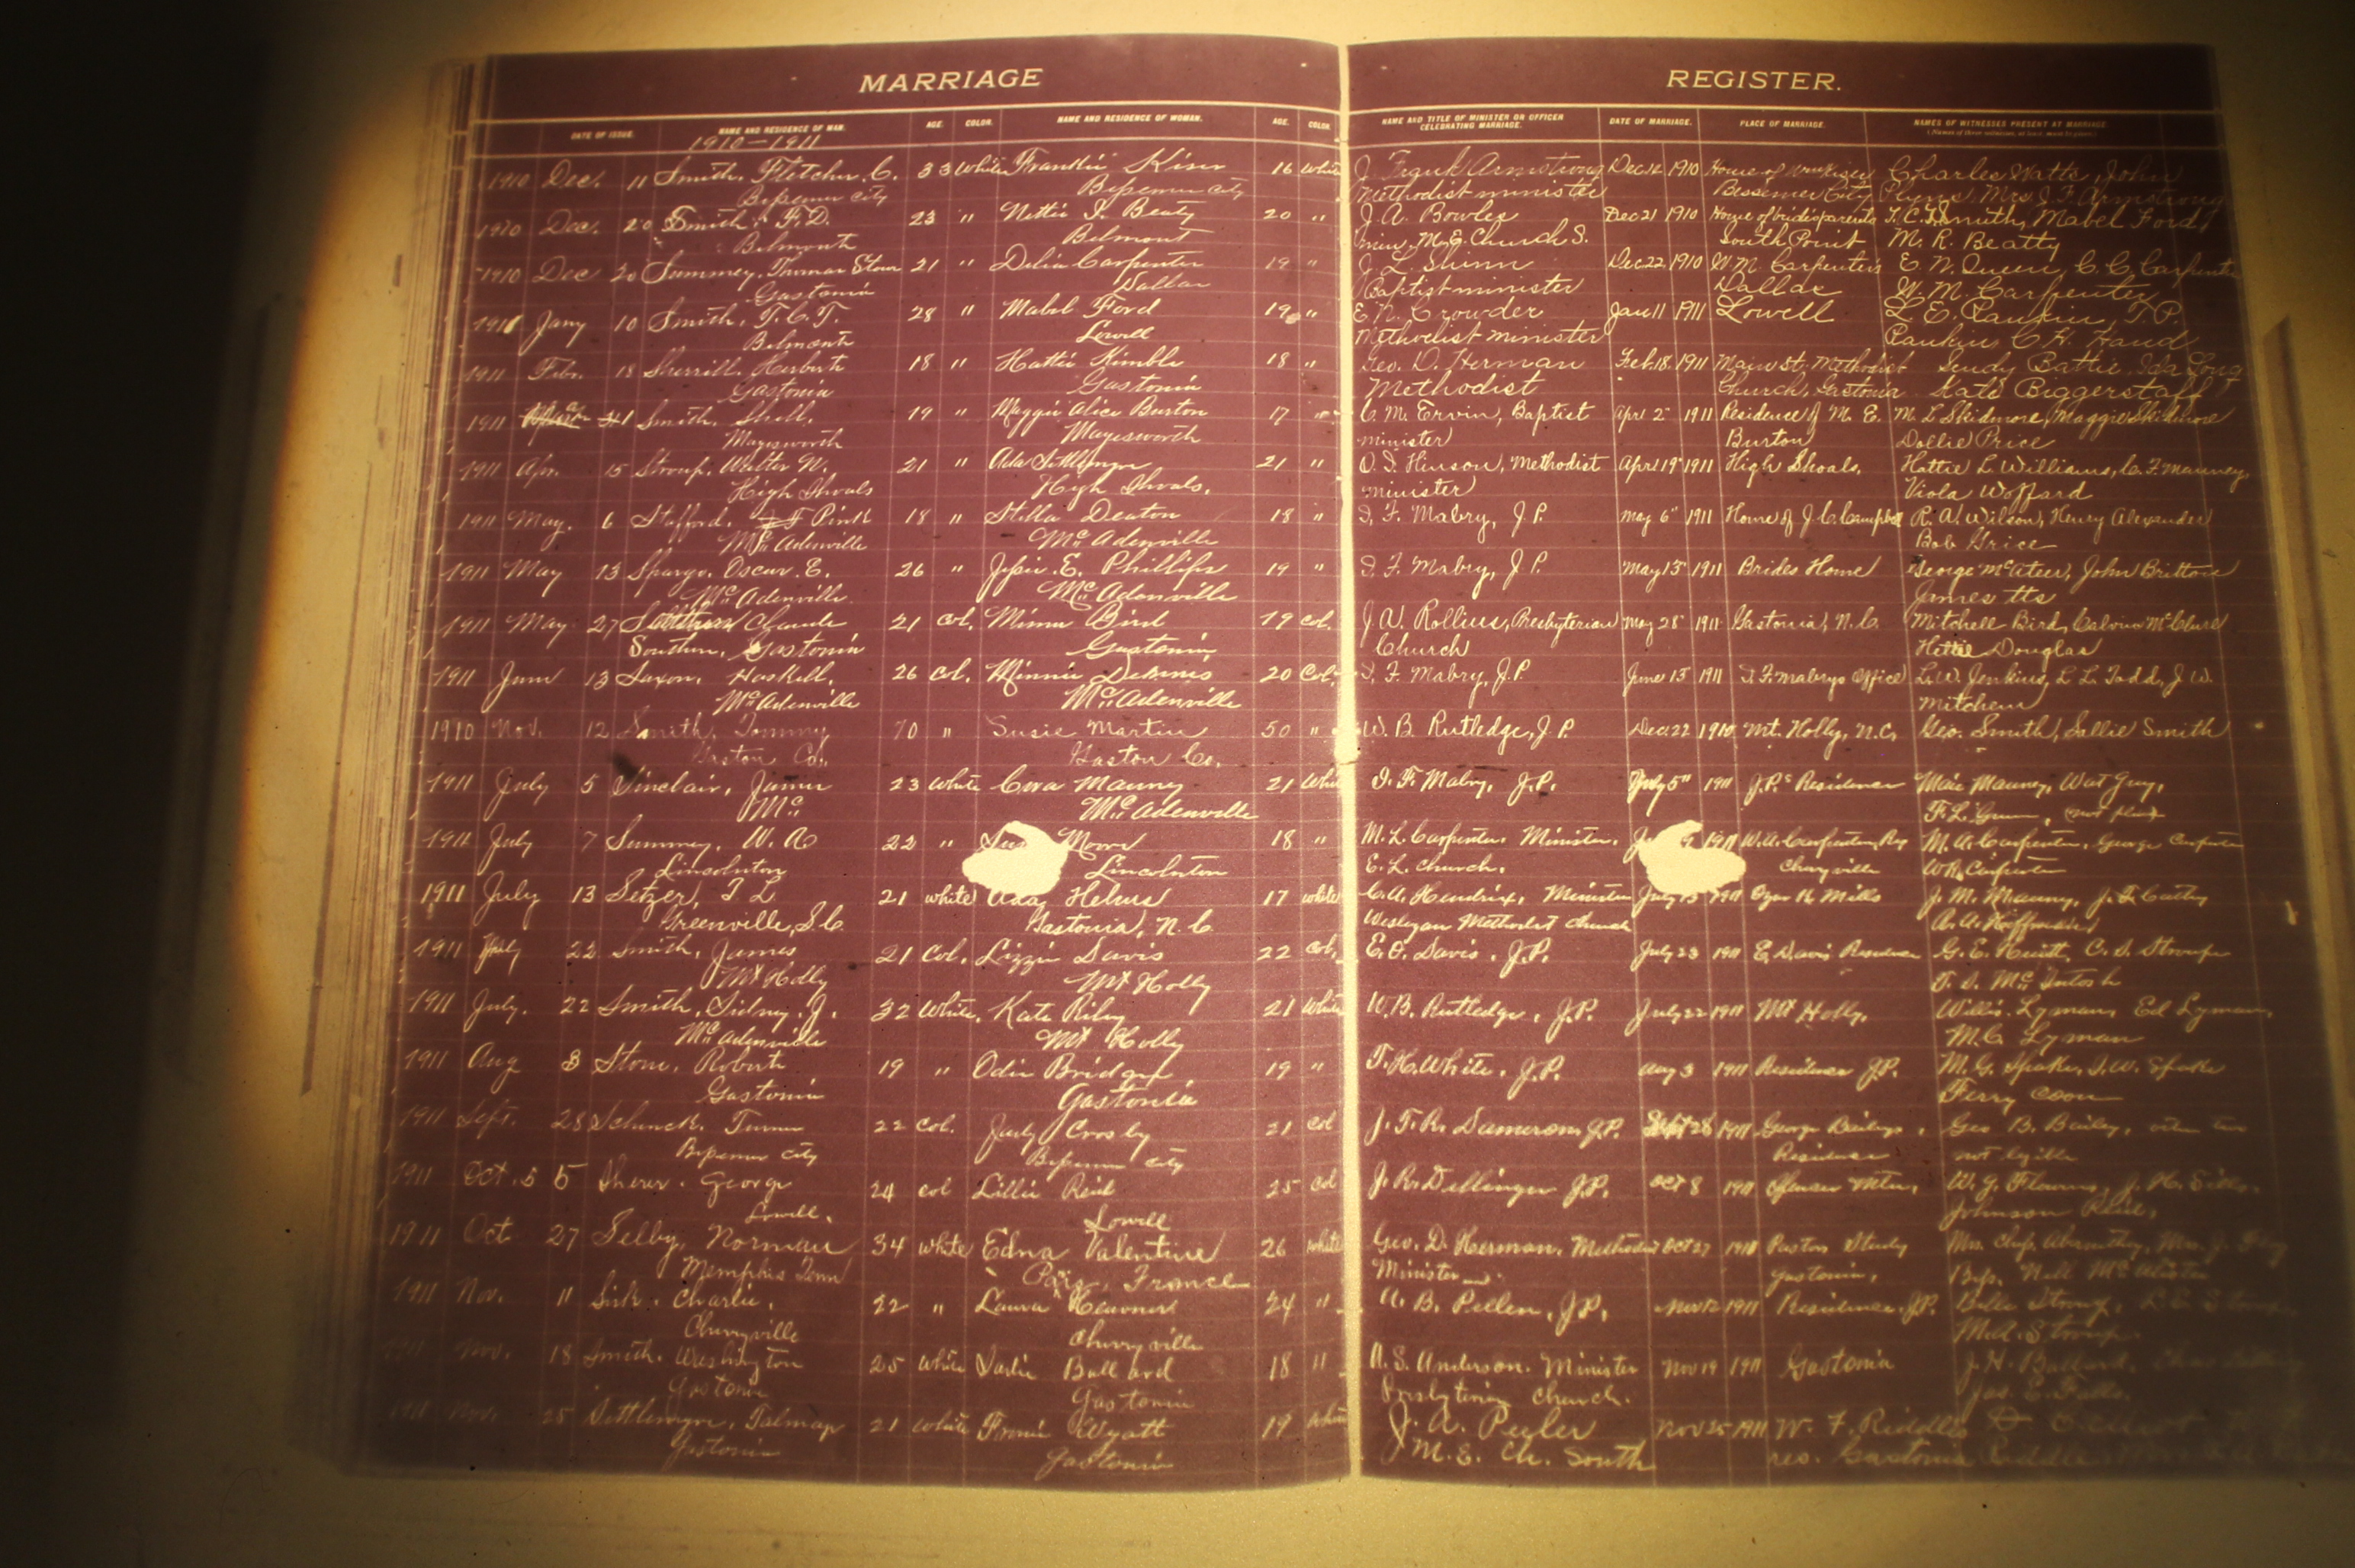 MARRIAGE REGISTER.
DATE OF ISSUE. NAME AND RESIDENCE OF MAN. AGE. COLOR. NAME AND RESIDENCE OF WOMAN. AGE. COLOR. NAME AND TITLE OF MINISTER OR OFFICER CELEBRATING MARRIAGE. DATE OF MARRIAGE. PLACE OF MARRIAGE. NAMES OF WITNESSES PRESENT AT MARRIAGE.
1910-1911
1910 Dec. 11 Smith, Fletcher C. 33 White Franklin Kiser 16 White J. Frank Armstrong Dec 12 1910 House of Charles Watts, John
Bessemer City Bessemer City Methodist minister Bessemer City Mrs J. F. Armstrong
1910 Dec. 20 Smith, F. D. 23 " Nettie I. Beaty 20 " J. A. Bowles Dec 21 1910 House of brides parents T. C. T. Smith, Mabel Ford
Belmont Belmont M. E. Church S. South Point M. R. Beatty
1910 Dec 20 Summey, Thomas Stowe 21 " Delia Carpenter 19 " J. L. Shinn Dec 22 1910 W M Carpenters E. N. Queen, C. C. Carpenter
Gastonia Dallas Baptist minister Dallas W. M. Carpenter
1911 Jany 10 Smith, T. C. T. 28 " Mabel Ford 19 " E. N. Crowder Jan 11 1911 Lowell L. E. Rankin, T. P.
Belmont Lowell Methodist minister Rankin C. H. Hand
1911 Feb. 18 Sherrill, Herbert 18 " Hattie Kimble 18 " Geo. D. Herman Feb. 18 1911 Main St, Methodist Battie, Ida Long
Gastonia Gastonia Methodist Church, Gastonia Kate Biggerstaff
1911 1 Smith, 19 " Maggie Alice Burton 17 " C. M. Ervin, Baptist Apr 2 1911 Residence of M. E. M. L Skidmore, Maggie Skidmore
Mayesworth Mayesworth minister Burton Dollie Price
1911 Apr. 15 Stroup, Walter N. 21 " Ada 21 " O. I. Hinson, Methodist Apr 19 1911 High Shoals. Hattie L Williams, C. F. Mauney,
High Shoals High Shoals. minister Viola Wofford
1911 May. 6 Stafford, Pink 18 " Stella Deaton 18 " I. F. Mabry, J.P. May 6 1911 Home of J. C. Campbell R. A. Wilson, Henry Alexander
McAdenville McAdenville Bob Grice
1911 May 13 Spargo, Oscar. E. 26 " Jessie E. Phillips 19 " I. F. Mabry, J.P. May 13 1911 Brides Home George McAteer, John Britton
McAdenville McAdenville James
1911 May 27 Claude 21 Col. Minnie Bird 19 col. J. A. Rollins, Presbyterian May 28 1911 Gastonia, N.C. Mitchell Bird, Calvin McClure
Southern, Gastonia Gastonia, Church Hettie Douglas
1911 June 13 Saxon, Haskell, 26 Col. Minnie 20 Col. I. F. Mabry, J.P. June 13 1911 I. F. Mabrys Office L. W. Jenkins, L L Todd, J. W.
McAdenville McAdenville Mitchem
1910 Nov. 12 Smith, Tommy 70 " Susie Martin 50 " W. B. Rutledge, J.P. Dec 22 1910 Mt. Holly, N.C. Geo. Smith, Sallie Smith
Gaston Co. Gaston Co.
1911 July 5 Sinclair, Junius 23 White Cora Mauney 21 White I. F. Mabry, J.P. July 5" 1911 J.P.s Residence Mauney, Wat Guy,
Mc McAdenville F. L.
1911 July 7 Summey, W. A 22 " Moore 18 " M. L. Carpenter Minister. 1911 W. A. Carpenter M. A. Carpenter, George Carpenter
Lincolnton Lincolnton E. L. Church. Cherryville W R. Carpenter
1911 July 13 Setzer, T L 21 white Ada Helms 17 white C. A. Hendrix, Minister July 13 1911 Ozark Mills J. M. Mauney, J. F. Cathey
Greenville, S.C. Gastonia, N.C. Wesleyan Methodist Church A. A. Hoffman
1911 July 22 Smith, James 21 Col. Lizzie Davis 22 Col. E. O. Davis, J.P. July 23 1911 E. Davis Residence G. E. C. S. Stroup
Mt Holly Mt Holly McIntosh
1911 July. 22 Smith, Sidney. J. 32 White. Kate Riley 21 White W. B. Rutledge, J.P. July 22 1911 Mt Holly. Willis Lyman, Ed Lyman,
McAdenville Mt Holly M. C Lyman
1911 Aug 3 Stone, Robert 19 " Odie Bridges 19 " T. H. White, J.P. Aug 3 1911 Residence J.P. M. G. Spake, I. W. Spake
Gastonia Gastonia Ferry Coon
1911 Sept. 28 Schenck, Turner 22 Col. Judy Crosby 21 Col J. F. R. Dameron, J.P. Sept 28 1911 George Baileys Geo B. Bailey,
Bessemer City Bessemer City Residence not legible
1911 Oct. 5 5 Sherer. George 24 Col Lillie Reid 25 Col J. R. Dellinger J.P. Oct 8 1911 Spencer Mtn. W. G. J. H. Sills,
Lowell. Lowell Johnson Reid.
1911 Oct 27 Selby, Norman 34 white Edna Valentine 26 white Geo. D. Herman, Methodist Oct 27 1911 Pastors Study Mrs.
Memphis Tenn Paris, France Minister Gastonia,
1911 Nov. 11 Sisk, Charlie, 22 " Laura Heavner 24 " A. B. J.P. Nov 12 1911 Residence J.P. Stroup,
Cherryville Cherryville M. A. Stroup.
1911 Nov. 18 Smith. Washington 25 White Bullard 18 " A. S. Anderson. Minister Nov 19 1911 Gastonia J. H. Bullard,
Gastonia Gastonia Presbyterian Church. Jas. E.
1911 Nov. 25 Settlemyre, Talmage 21 White Wyatt 19 White J. A. Peeler Nov 25 1911 W. F. Riddle
Gastonia Gastonia M. E. Ch. South res. Gastonia